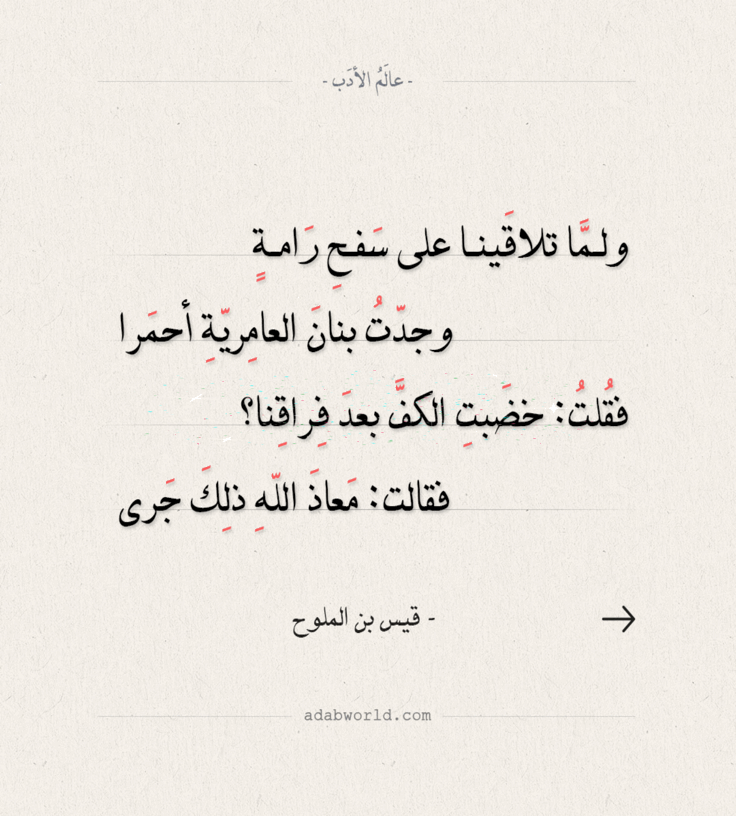 - عالَمُ الأدَب -
ولـمَّا تلاقَينـا على سَفـحِ رَامـةٍ
وجدّتُ بنانَ العامِريّةِ أحمَرا
فقُلتُ: خضَبتِ الكفَّ بعدَ فِراقِنا؟
فقالت: مَعاذَ اللّهِ ذلِكَ جَرى
- قيس بن الملوح
adabworld.com